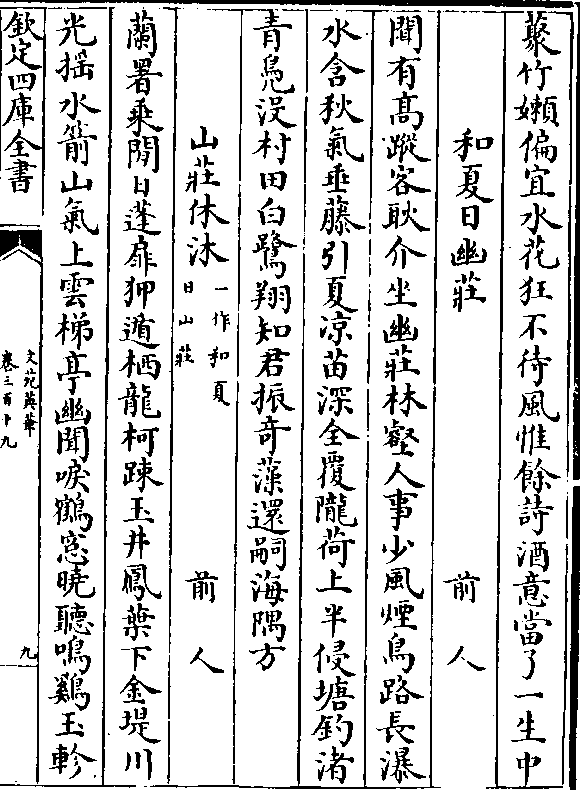 藂竹嬾偏宜水花狂不待風惟餘詩酒意當了一生中
和夏日幽莊　前人
聞有髙蹤客耿介坐幽莊林壑人事少風煙鳥路長瀑
水含秋氣垂藤引夏凉苗深全覆隴荷上半侵塘釣渚
青鳬没村田白鷺翔知君振奇藻還嗣海隅方
山莊休沐一作和夏日山莊　前人
蘭署乗閒日蓬扉狎遁栖龍柯踈玉井鳳葉下金堤川
光揺水箭山氣上雲梯亭幽聞唳鶴窓曉聽鳴鷄玉軫
欽定四庫全書
文苑英華
卷三百十九
九